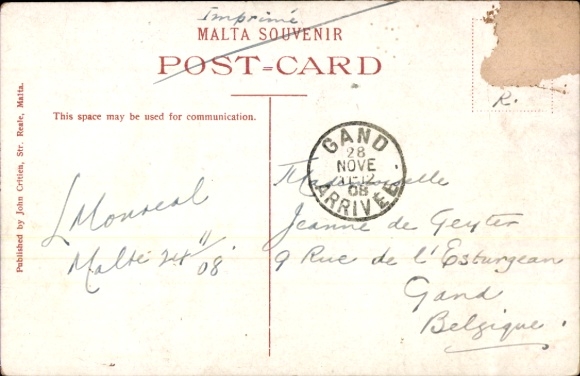 Imprimé
MALTA SOUVENIR
POST=CARD
This space may be used for communication.
R.
Published by John Critien, Str. Reale, Malta.
GAND
28
NOVE
11-12
08
ARRIVÉE
L Monreal
Malte 24 11/08.
Mademoiselle
Jeanne de Geyter
9 Rue de l'Esturgeon
Gand
Belgique.